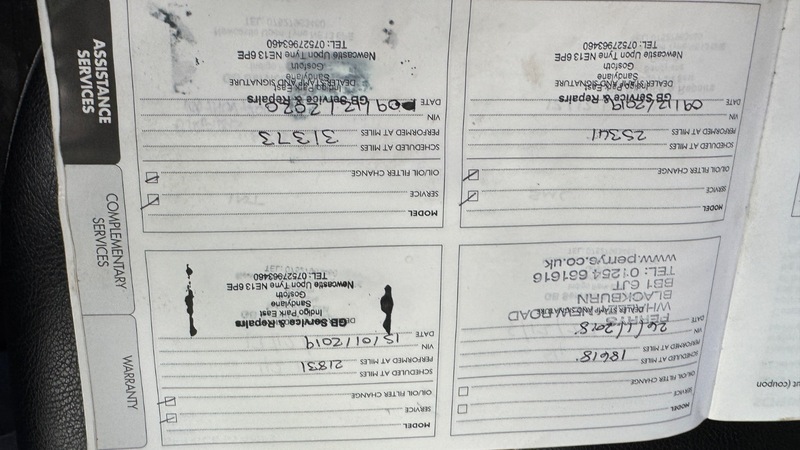 MODEL
SERVICE
OIL/OIL FILTER CHANGE
SCHEDULED AT MILES
PERFORMED AT MILES 18618
VIN
DATE
DEALER STAMP AND SIGNATURE
PERRYS
ROAD
BLACKBURN
BB1 6JT
TEL: 01254 661616
www.perrys.co.uk
MODEL
SERVICE
OIL/OIL FILTER CHANGE
SCHEDULED AT MILES
PERFORMED AT MILES 21831
VIN
DATE 15/01/2019
GB Service & Repairs
Indigo Park East
Sandylane
Gosforth
Newcastle Upon Tyne NE13 6PE
TEL: 07527963460
MODEL
SERVICE
OIL/OIL FILTER CHANGE
SCHEDULED AT MILES
PERFORMED AT MILES 25341
VIN
DATE 09/12/2019
GB Service & Repairs
Indigo Park East
DEALER STAMP AND SIGNATURE
Sandylane
Gosforth
Newcastle Upon Tyne NE13 6PE
TEL: 07527963460
MODEL
SERVICE
OIL/OIL FILTER CHANGE
SCHEDULED AT MILES
PERFORMED AT MILES 31373
VIN
DATE 09/12/2020
GB Service & Repairs
Indigo Park East
DEALER STAMP AND SIGNATURE
Sandylane
Gosforth
Newcastle Upon Tyne NE13 6PE
TEL: 07527963460
ASSISTANCE
SERVICES
COMPLEMENTARY
SERVICES
WARRANTY
ut (coupon